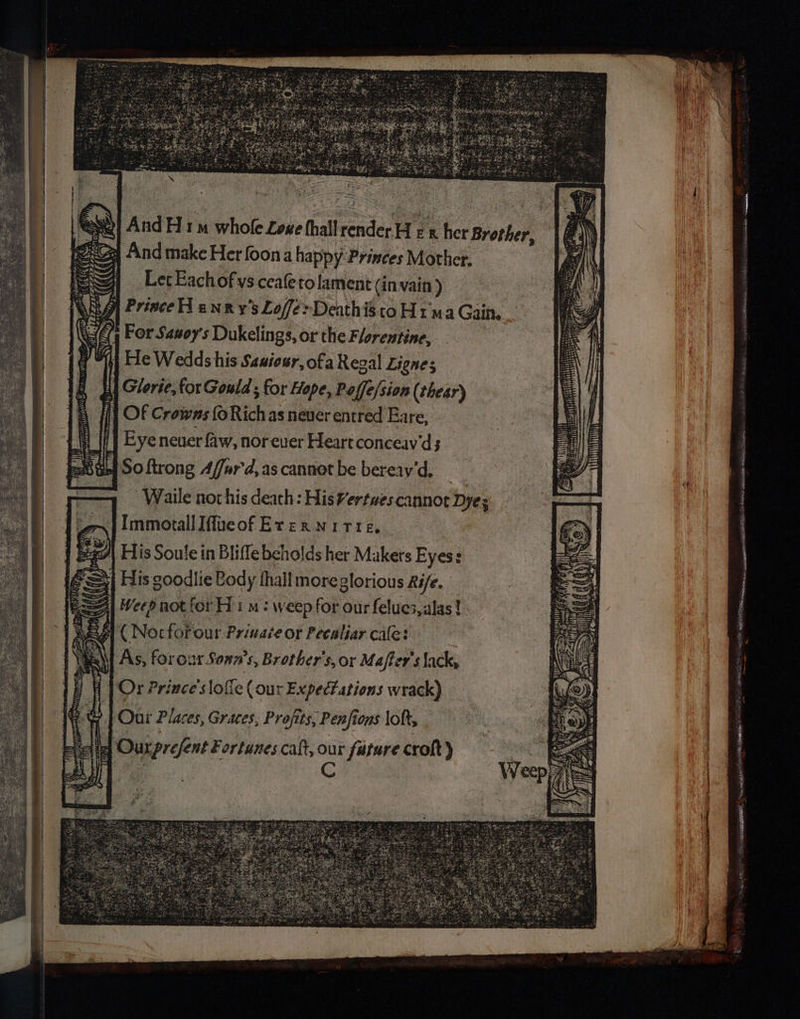 And HIM whoſe Loue ſhall render HER her Brother,
And make Her ſoon a happy Princes Mother.
Let Each of vs ceaſe to lament (in vain)
Prince HENRY's Loſſe: Death is to HIM a Gain.
For Sauoy's Dukelings, or the Florentine,
He Wedds his Sauiour, of a Regal Ligne;
Glorie, for Gould; for Hope, Poſſeſsion (thear)
Of Crowns ſo Rich as neuer entred Eare,
Eye neuer ſaw, nor euer Heart conceav'd;
So ſtrong Aſſur'd, as cannot be bereav'd.
Waile not his death: His Vertues cannot Dye;
Immotall Iſſue of ETERNITIE.
His Soule in Bliſſe beholds her Makers Eyes:
His goodlie Body ſhall more glorious Riſe.
Weep not for HIM: weep for our ſelues, alas!
(Not for our Priuate or Peculiar caſe:
As, for our Sonn's, Brother's, or Maſter's lack,
Or Prince's loſſe (our Expectations wrack)
Our Places, Graces, Profits, Penſions loſt,
Our preſent Fortunes caſt, our future croſt)
C Weep